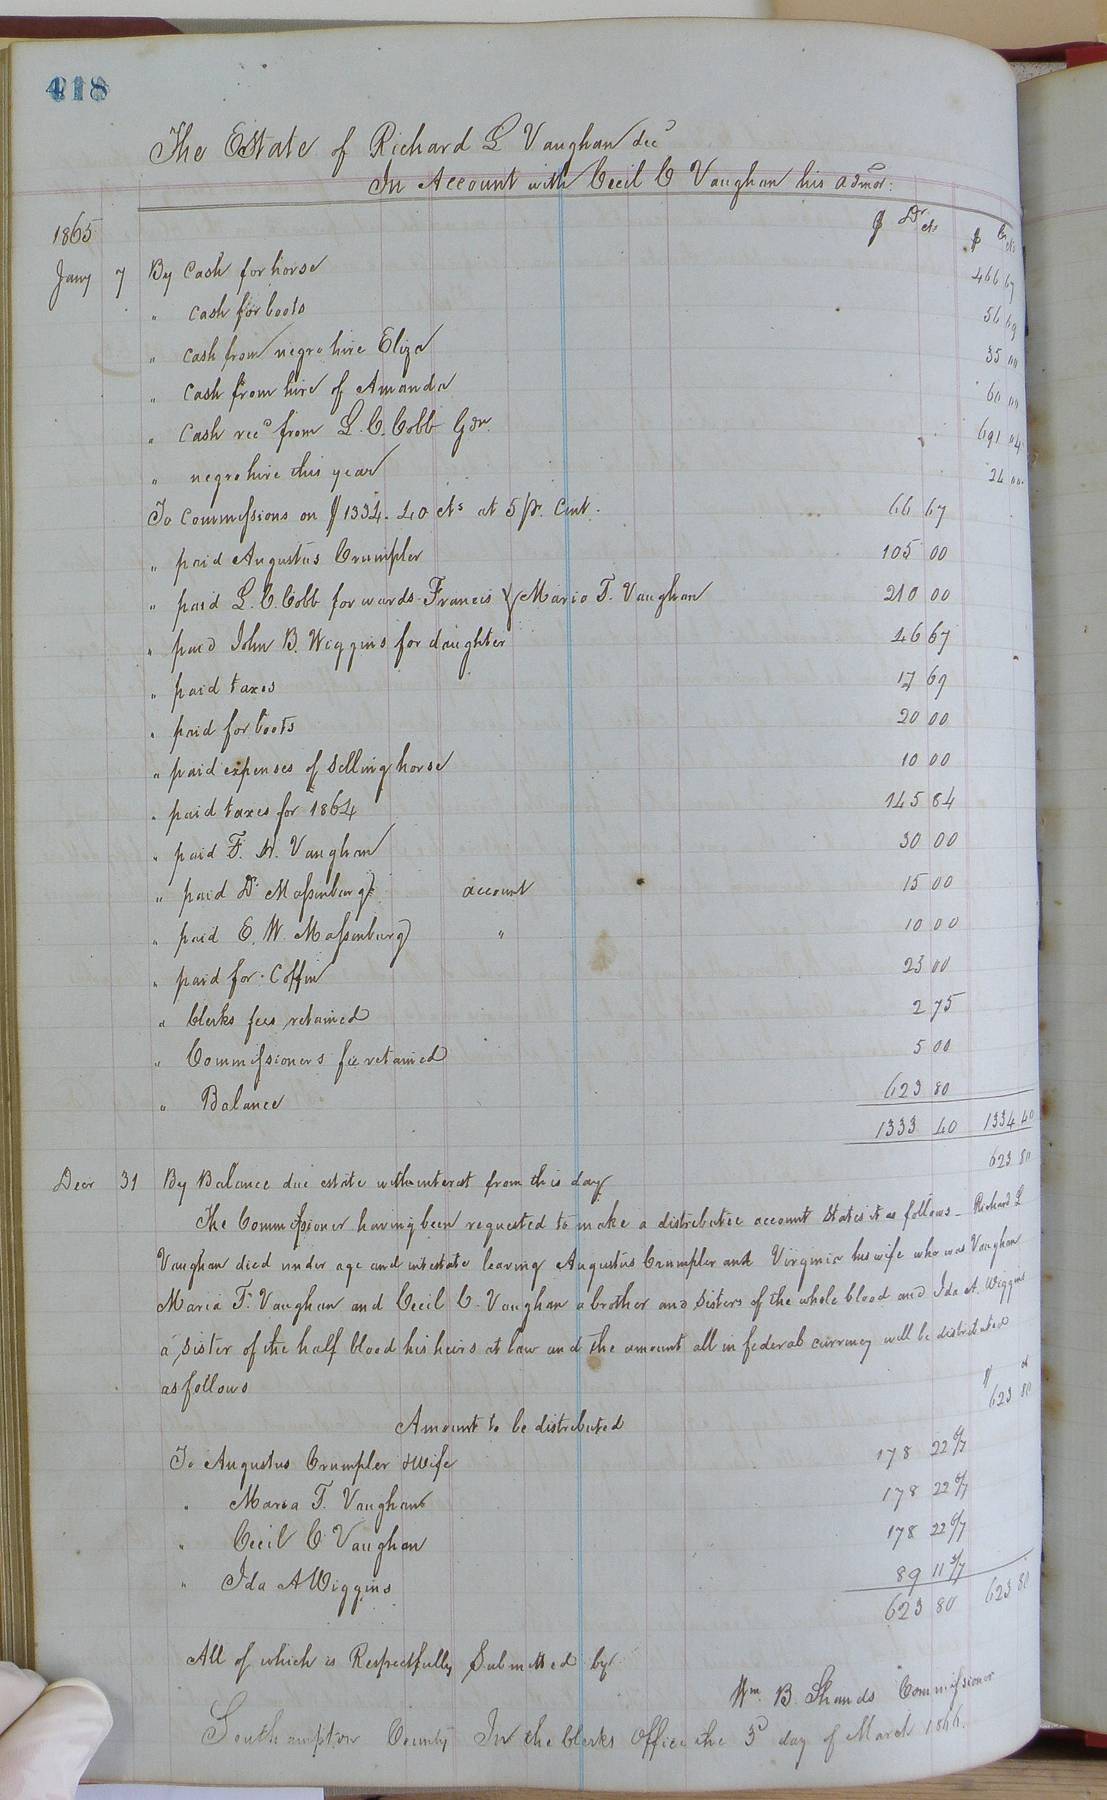 418
The Estate of Richard L Vaughan decd
In Account with Cecil C Vaughan his admor:
1865 $ Dr cts $ Cr cts
Jany 7 By Cash for horse 466 67
" cash for boots 56 69
" cash from negro hire Eliza 35 00
" cash from hire of Amanda 60 00
" cash recd from L. C. Cobb Gdn. 691 04
" negro hire this year 24 00
To Commissions on $1334. 40 cts at 5 pr. Cent. 66 67
" paid Augustus Crumpler 105 00
" paid L. C. Cobb for wards Francis & Maria T. Vaughan 210 00
" paid John B. Wiggins for daughter 46 67
" paid taxes 17 69
" paid for boots 20 00
" paid expenses of selling horse 10 00
" paid taxes for 1864 145 84
" paid F. N. Vaughan 30 00
" paid Dr Massenburg account 15 00
" paid E. W. Massenburg " 10 00
" paid for Coffin 23 00
" Clerks fees retained 2 75
" Commissioners fee retained 5 00
" Balance 623 80
1333 40 1334 40
Decr 31 By Balance due estate with interest from this day 623 80
The Commissioner having been requested to make a distributive account States it as follows - Richard L
Vaughan died under age and intestate leaving Augustus Crumpler and Virginia his wife who was Vaughan
Maria F. Vaughan and Cecil C. Vaughan a brother and Sisters of the whole blood and Ida A. Wiggins
a sister of the half blood his heirs at law and the amount all in federal currency will be distributed
as follows $ ct
Amount to be distributed 623 80
To Augustus Crumpler & Wife 178 22 6/7
" Maria T. Vaughan 178 22 6/7
" Cecil C Vaughan 178 22 6/7
" Ida A Wiggins 89 11 3/7
623 80 623 80
All of which is Respectfully Submitted by
Wm. B. Shands Commissioner
Southampton County In the Clerks Office the 3d day of March 1866.